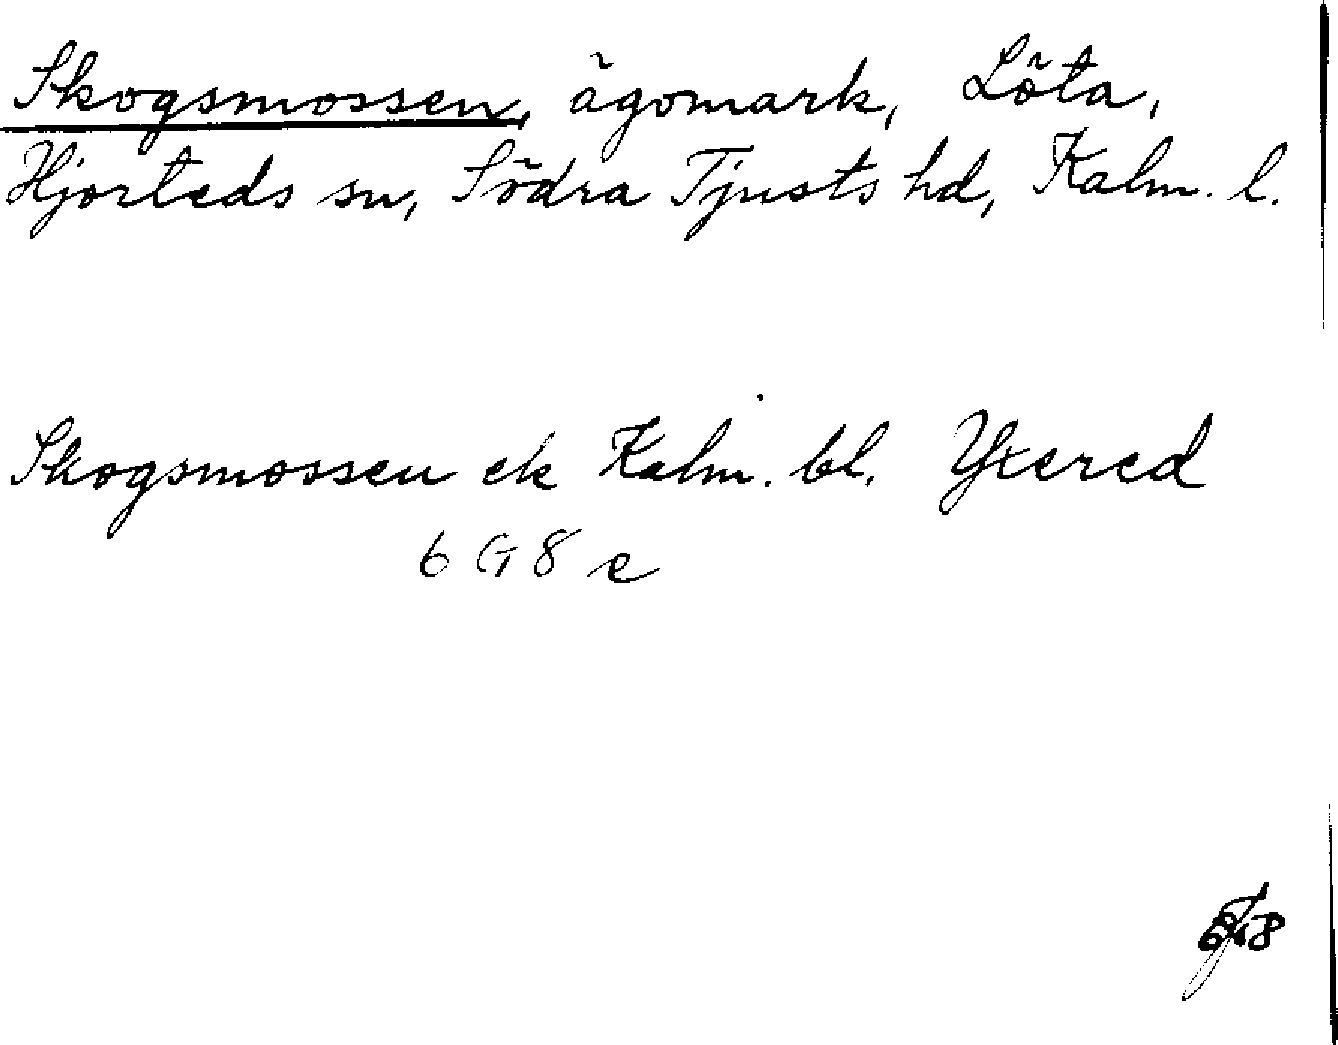 Skogsmossen, ägomark, Löta,
Hjorteds sn, Södra Tjusts hd, Kalm. l.
Skogsmossen ek Kalm. bl. Yxered
6 G 8 e